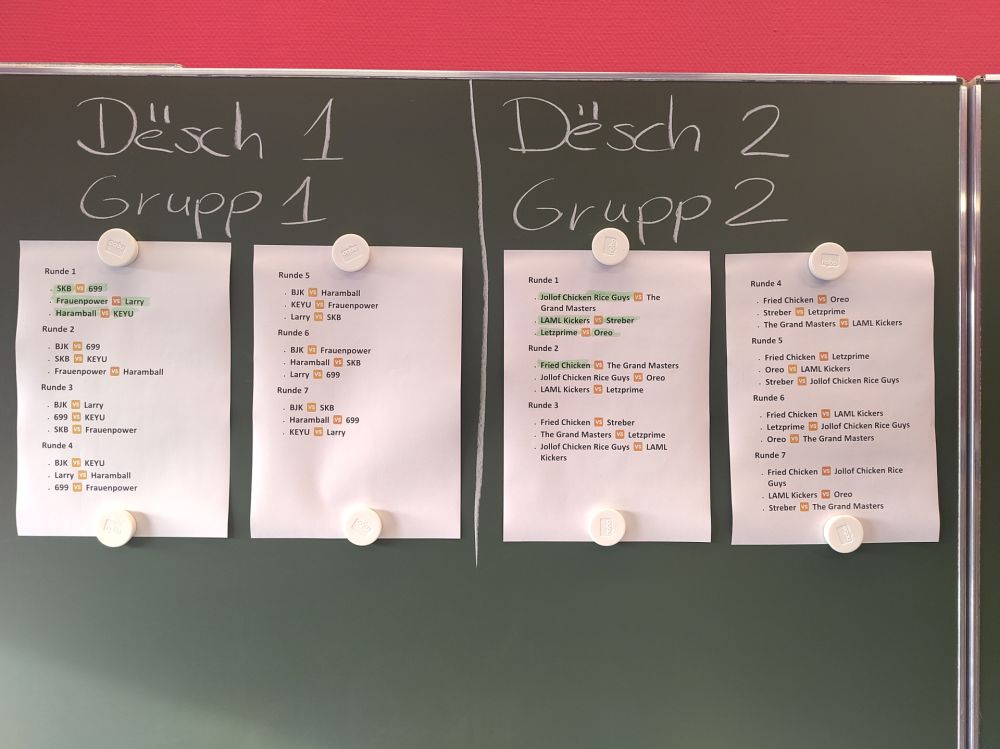 Dësch 1
Grupp 1
Dësch 2
Grupp 2
Runde 1
. SKB VS 699
. Frauenpower VS Larry
. Haramball VS KEYU
Runde 2
. BJK VS 699
. SKB VS KEYU
. Frauenpower VS Haramball
Runde 3
. BJK VS Larry
. 699 VS KEYU
. SKB VS Frauenpower
Runde 4
. BJK VS KEYU
. Larry VS Haramball
. 699 VS Frauenpower
Runde 5
. BJK VS Haramball
. KEYU VS Frauenpower
. Larry VS SKB
Runde 6
. BJK VS Frauenpower
. Haramball VS SKB
. Larry VS 699
Runde 7
. BJK VS SKB
. Haramball VS 699
. KEYU VS Larry
Runde 1
. Jollof Chicken Rice Guys VS The
Grand Masters
. LAML Kickers VS Streber
. Letzprime VS Oreo
Runde 2
. Fried Chicken VS The Grand Masters
. Jollof Chicken Rice Guys VS Oreo
. LAML Kickers VS Letzprime
Runde 3
. Fried Chicken VS Streber
. The Grand Masters VS Letzprime
. Jollof Chicken Rice Guys VS LAML
Kickers
Runde 4
. Fried Chicken VS Oreo
. Streber VS Letzprime
. The Grand Masters VS LAML Kickers
Runde 5
. Fried Chicken VS Letzprime
. Oreo VS LAML Kickers
. Streber VS Jollof Chicken Rice Guys
Runde 6
. Fried Chicken VS LAML Kickers
. Letzprime VS Jollof Chicken Rice Guys
. Oreo VS The Grand Masters
Runde 7
. Fried Chicken VS Jollof Chicken Rice
Guys
. LAML Kickers VS Oreo
. Streber VS The Grand Masters